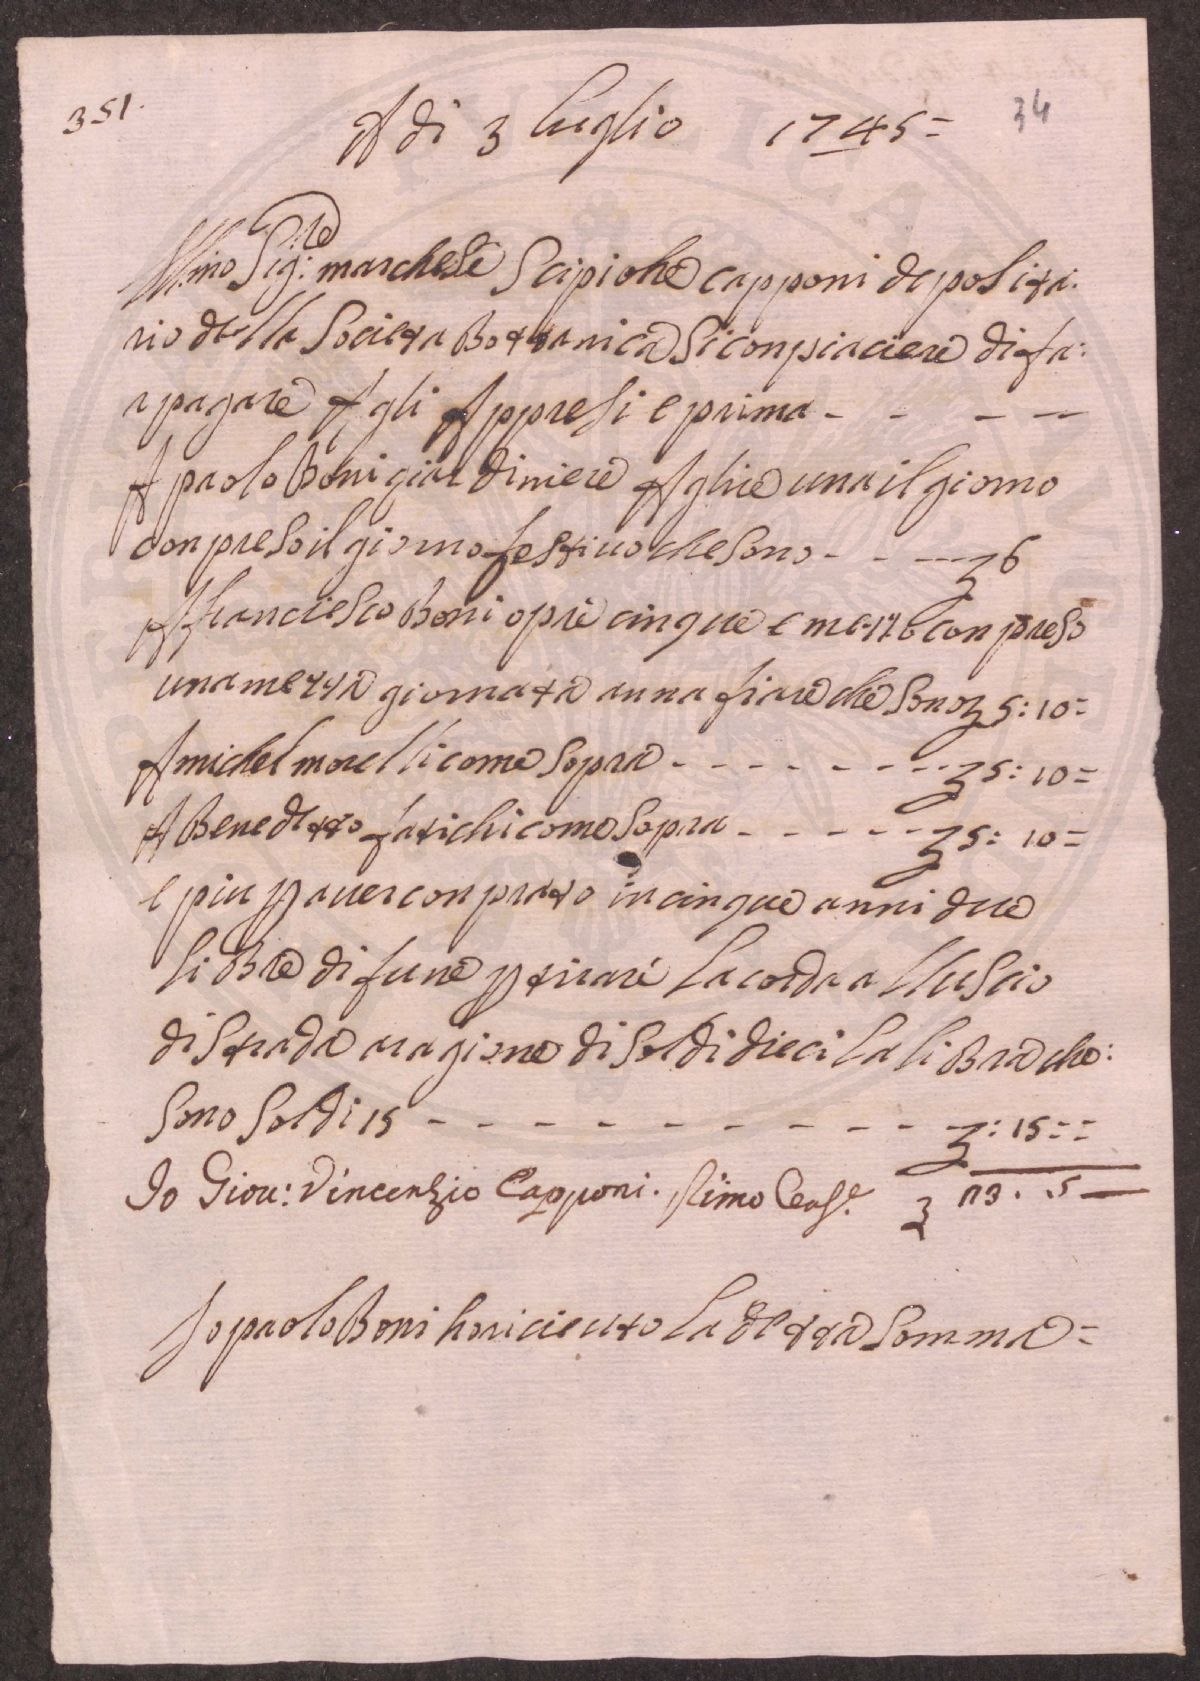 351.
34
A di 3 luglio 1745=
Illmo Sig:re marchese Scipione capponi deposita:
rio della Societa Bottanica Si conpiaciere di fa:
r pagare A gli Appresi e prima - - - -
A paolo Boni giardiniere Aghie una il giorno
conpreso il giorno festiuo che sono - - - 6
A franciesco Boni opre cinque e mezzo conpreso
una mezza giornata annafiare che sono 5: 10=
A michel morelli come sopra - - - - - - - - 5: 10=
A Benedetto fatichi come sopra - - - - - 5: 10=
e piu p auer conprato in cinque anni due
libre di fune p tirare la corda alluscio
di strada a ragione di soldi dieci la libra che:
sono soldi 15 - - - - - - - - - - - : 15==
Io Giou: Vincenzio Capponi.
Io paolo Boni ho riceuto la detta somma=